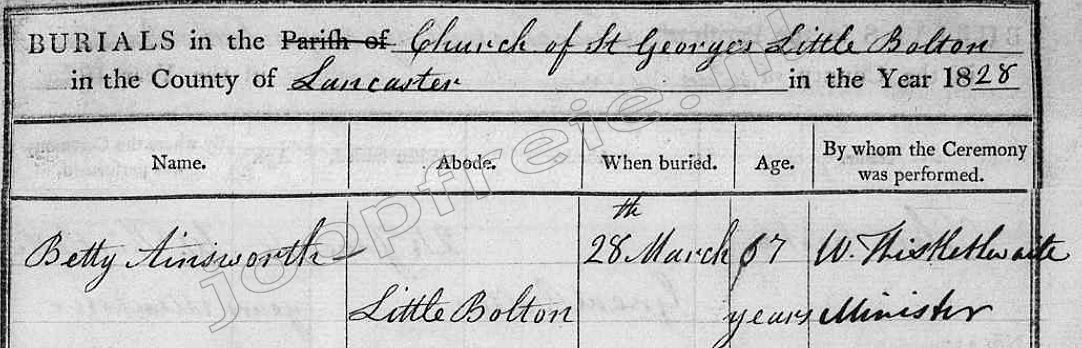 BURIALS in the Parish of Church of St Georges Little Bolton
in the County of Lancaster in the Year 1828
Name. Abode. When buried. Age. By whom the Ceremony was performed.
Betty Ainsworth 28th March 67 W. Thistlethwaite
Little Bolton years Minister
joopfreie.nl